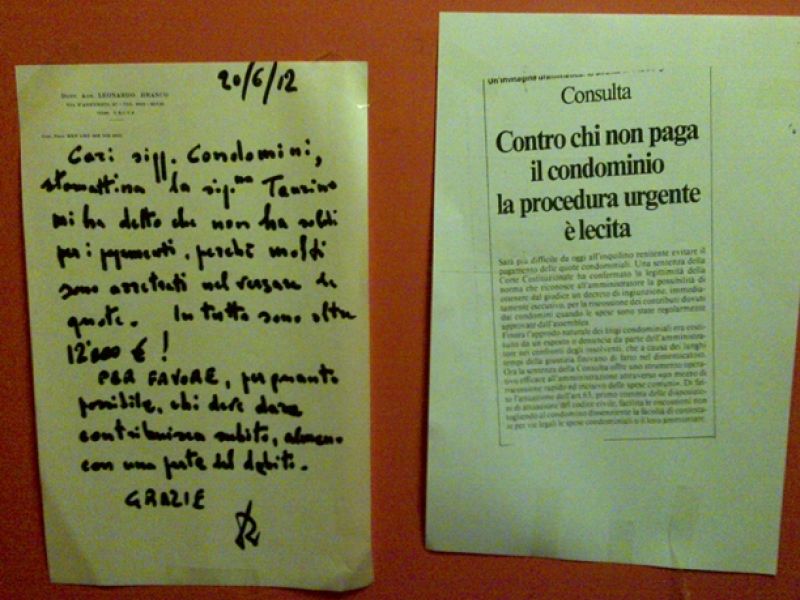 20/6/12
LEONARDO BRANCO
Cari sigg. Condomini,
stamattina la sig.na Taurino
mi ha detto che non ha soldi
per i pagamenti, perché molti
sono arretrati nel versare le
quote. In tutto sono oltre
12'000 € !
PER FAVORE, per quanto
possibile, chi deve dare
contribuisca subito, almeno
con una parte del debito.
GRAZIE
Consulta
Contro chi non paga
il condominio
la procedura urgente
è lecita
Sarà più difficile da oggi all'inquilino renitente evitare il
pagamento delle quote condominiali. Una sentenza della
Corte Costituzionale ha confermato la legittimità della
norma che riconosce all'amministratore la possibilità di
ottenere dal giudice un decreto di ingiunzione, immedia-
tamente esecutivo, per la riscossione dei contributi dovuti
dai condomini quando le spese sono state regolarmente
approvate dall'assemblea.
Finora l'approdo naturale dei litigi condominiali era costi-
tuito da un esposto o denuncia da parte dell'amministra-
tore nei confronti degli insolventi, che a causa dei lunghi
tempi della giustizia finivano di fatto nel dimenticatoio.
Ora la sentenza della Consulta offre uno strumento opera-
tivo efficace all'amministrazione attraverso «un mezzo di
riscossione rapido ed incisivo delle spese comuni». Di fat-
to l'attuazione dell'art.63, primo comma delle disposizio-
ni di attuazione del codice civile, facilita le riscossioni non
togliendo al condomino dissenziente la facoltà di contesta-
re per vie legali le spese condominiali o il loro ammontare.